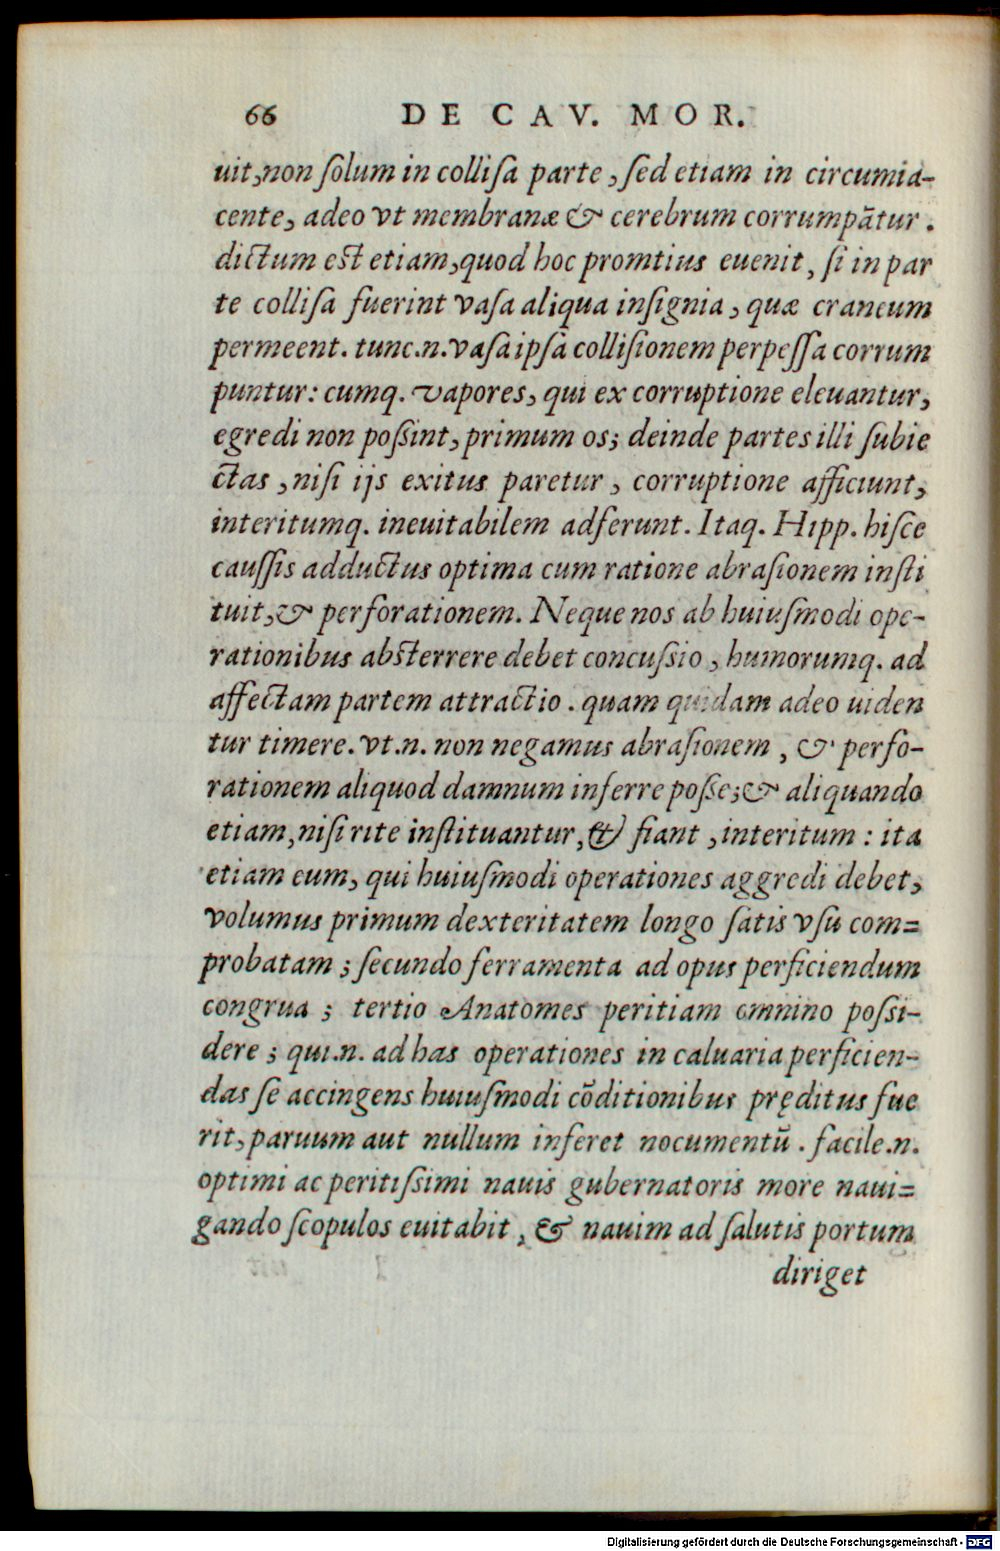 66 DE CAV. MOR.
uit, non ſolum in colliſa parte, ſed etiam in circumia-
cente, adeo vt membranæ & cerebrum corrumpãtur.
dictum est etiam, quod hoc promtius euenit, ſi in par
te colliſa fuerint vaſa aliqua inſignia, quæ craneum
permeent. tunc.n. vaſa ipſa colliſionem perpeſſa corrum
puntur: cumq. vapores, qui ex corruptione eleuantur,
egredi non poßint, primum os; deinde partes illi ſubie
ctas, niſi ijs exitus paretur, corruptione afficiunt,
interitumq. ineuitabilem adferunt. Itaq. Hipp. hiſce
cauſſis adductus optima cum ratione abraſionem inſti
tuit, & perforationem. Neque nos ab huiuſmodi ope-
rationibus absterrere debet concuſsio, humorumq. ad
affectam partem attractio. quam quidam adeo uiden
tur timere. vt.n. non negamus abraſionem, & perfo-
rationem aliquod damnum inferre poße; & aliquando
etiam, niſi rite inſtituantur, & fiant, interitum: ita
etiam eum, qui huiuſmodi operationes aggredi debet,
volumus primum dexteritatem longo ſatis vſu com=
probatam; ſecundo ferramenta ad opus perficiendum
congrua; tertio Anatomes peritiam omnino poſsi-
dere; qui.n. ad has operationes in caluaria perficien-
das ſe accingens huiuſmodi cõditionibus pręditus fue
rit, paruum aut nullum inferet nocumentũ. facile.n.
optimi ac peritiſsimi nauis gubernatoris more naui=
gando ſcopulos euitabit, & nauim ad ſalutis portum
diriget
Digitalisierung gefördert durch die Deutsche Forschungsgemeinschaft - DFG